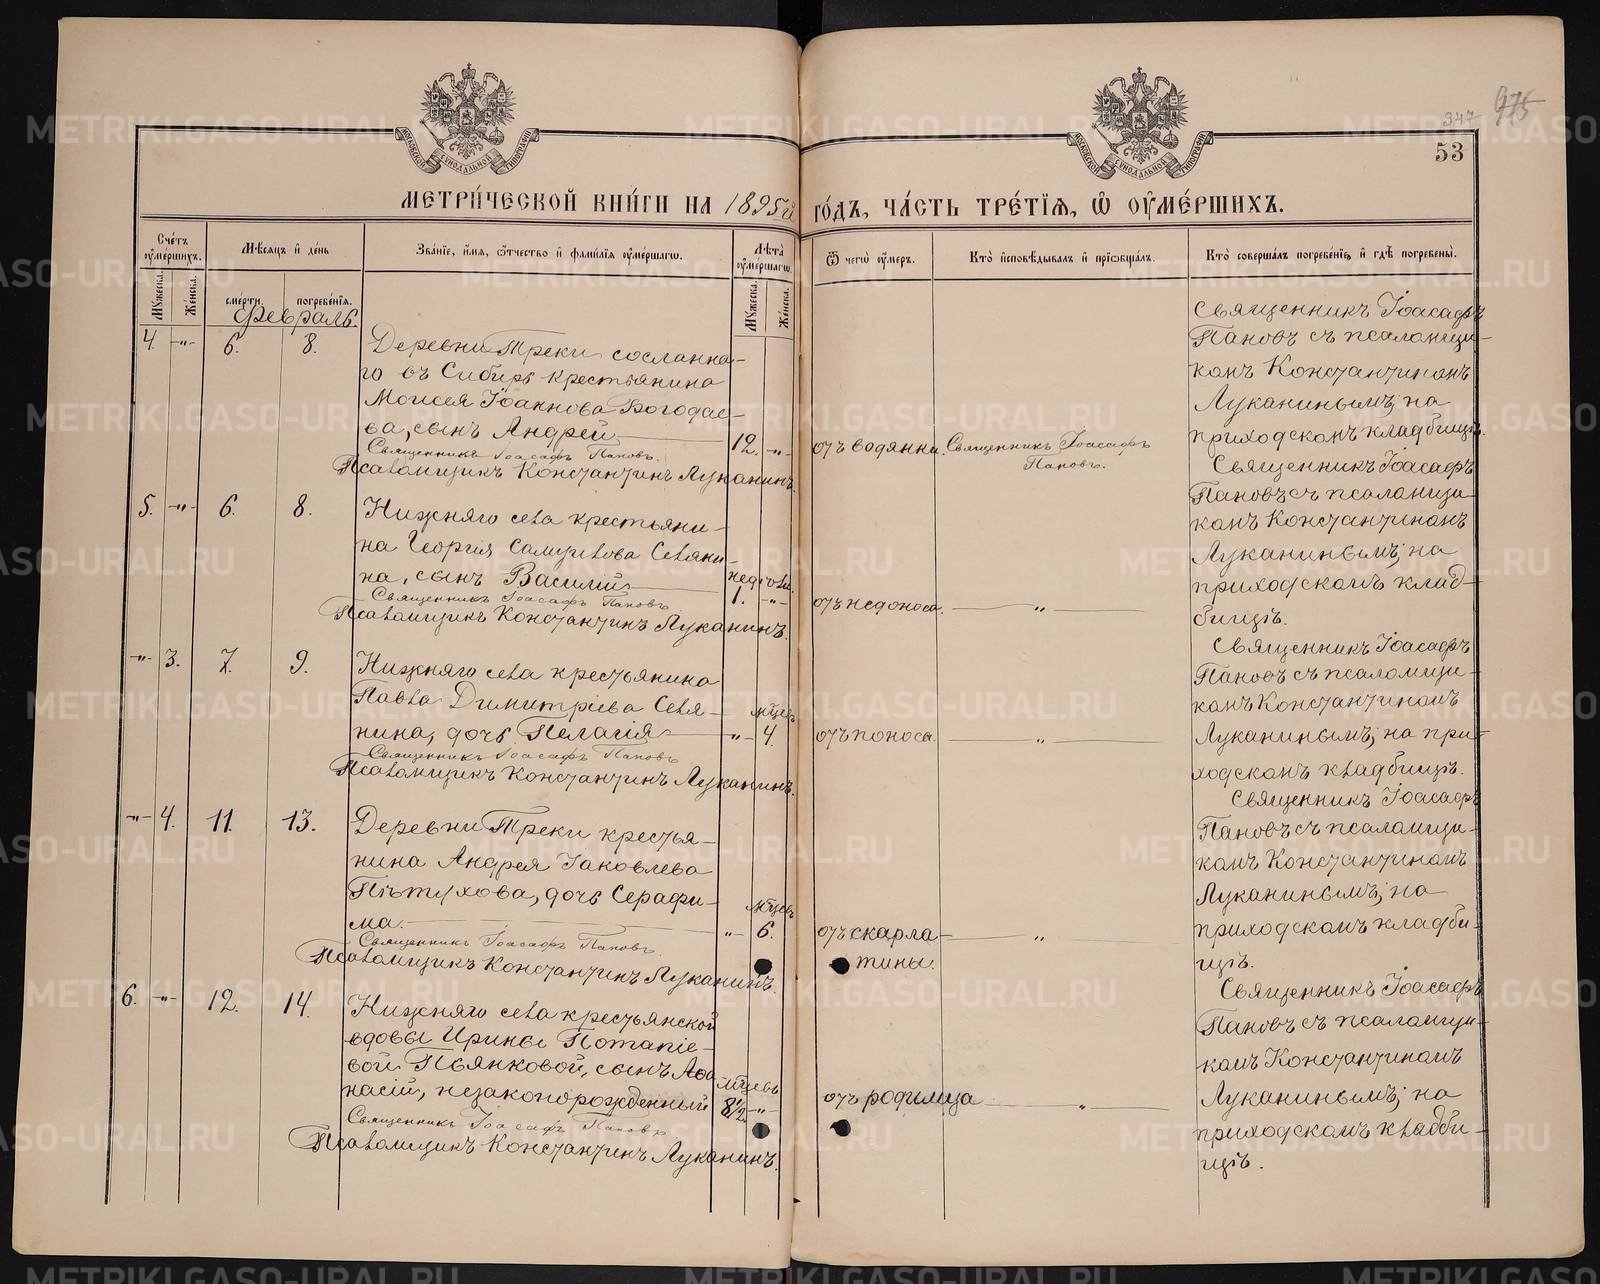 347 975
53
МОСКОВСКОЙ СѴНОДАЛЬНОЙ ТИПОГРАФІИ
МОСКОВСКОЙ СѴНОДАЛЬНОЙ ТИПОГРАФІИ
МЕТРИ́ЧЕСКОЙ КНИ́ГИ НА 1895й ГО́ДЪ, ЧА́СТЬ ТРЕ́ТІѦ, Ѽ ОУМЕ́РШИХЪ.
Сче́тъ оуме́ршихъ.
Мѣ́сяцъ и де́нь
Зва́ніе, и́мя, ѻ́тчество и фами́лія оуме́ршагѡ.
Лѣ́та оуме́ршагѡ.
Ѿ чегѡ̀ оу́меръ.
Кто̀ исповѣ́дывалъ и приѡбща́лъ.
Кто̀ соверша́лъ погребе́ніе, и гдѣ̀ погребены̀.
Мꙋ́жеска.
Же́нска.
сме́рти.
погребе́нія.
Мꙋ́жеска.
Же́нска.
Февраль.
4. -"- 6. 8.
Деревни Треки сосланна-
го въ Сибирь крестьянина
Моисея Іоаннова Богодае-
ва, сынъ Андрей 12. -"-
Священникъ Іоасафъ Пановъ.
Псаломщикъ Константинъ Луканинъ.
отъ водянки.
Священникъ Іоасафъ
Пановъ.
Священникъ Іоасафъ
Пановъ съ псаломщи-
комъ Константиномъ
Луканинымъ, на
приходскомъ кладбищѣ.
5. -"- 6. 8.
Нижняго села крестьяни-
на Георгія Самуилова Селяни-
на, сынъ Василій недѣли.
1. -"-
Священникъ Іоасафъ Пановъ
Псаломщикъ Константинъ Луканинъ.
отъ недоноса. "
Священникъ Іоасафъ
Пановъ съ псаломщи-
комъ Константиномъ
Луканинымъ, на
приходскомъ клад-
бищѣ.
-"- 3. 7. 9.
Нижняго села крестьянина
Павла Димитріева Селя-
нина, дочь Пелагія мѣсцевъ
-"- 4.
Священникъ Іоасафъ Пановъ
Псаломщикъ Константинъ Луканинъ.
отъ поноса. "
Священникъ Іоасафъ
Пановъ съ псаломщи-
комъ Константиномъ
Луканинымъ, на при-
ходскомъ кладбищѣ.
-"- 4. 11. 13.
Деревни Треки крестья-
нина Андрея Іаковлева
Пѣтухова, дочь Серафи-
ма. мѣсцевъ
-"- 6.
Священникъ Іоасафъ Пановъ
Псаломщикъ Константинъ Луканинъ.
отъ скарла-
тины. "
Священникъ Іоасафъ
Пановъ съ псаломщи-
комъ Константиномъ
Луканинымъ, на
приходскомъ кладби-
щѣ.
6. -"- 12. 14.
Нижняго села крестьянской
вдовы Ирины Потапіе-
вой Пьянковой, сынъ Аѳа-
насій, незаконорожденный мѣсцевъ
8½ -"-
Священникъ Іоасафъ Пановъ
Псаломщикъ Константинъ Луканинъ.
отъ родимца "
Священникъ Іоасафъ
Пановъ съ псаломщи-
комъ Константиномъ
Луканинымъ, на
приходскомъ кладби-
щѣ.
METRIKI.GASO-URAL.RU